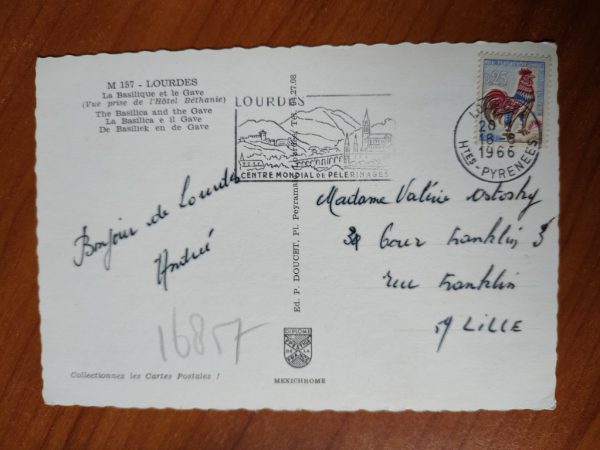 M 157 - LOURDES
La Basilique et le Gave
(Vue prise de l'Hôtel Béthanie)
The Basilica and the Gave
La Basilica e il Gave
De Basiliek en de Gave
LOURDES
CENTRE MONDIAL DE PÈLERINAGES
0,25
18 H
1966
HTES-PYRÉNÉES
Bonjour de Lourdes
André
16857
Ed. P. DOUCET, Pl. Peyramale, Lourdes, Tél. 27.08
Madame Valérie
Cour Franklin
rue Franklin
59 LILLE
DIPLOME
DE LA
MEXICHROME
Collectionnez les Cartes Postales !